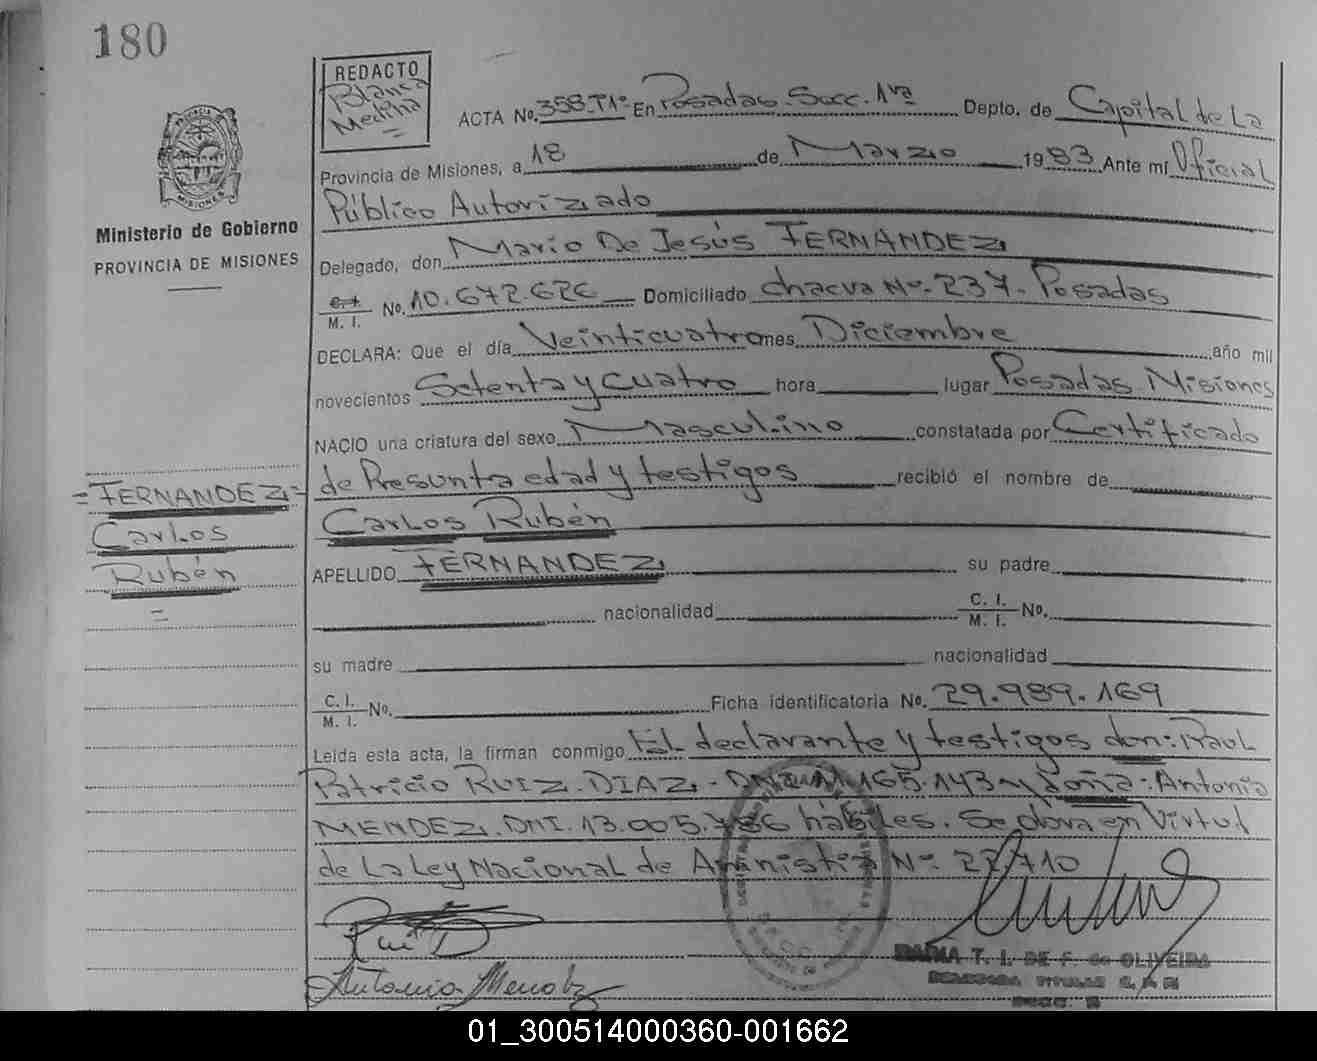 180
REDACTO
Blanca
Medina
=
PROVINCIA DE
MISIONES
Ministerio de Gobierno
PROVINCIA DE MISIONES
ACTA No. 358-T1º En Posadas. Secc. 1ra Depto. de Capital de La
Provincia de Misiones, a 18 de Marzo 1983 Ante mí Oficial
Público Autorizado
Delegado, don Mario De Jesús FERNANDEZ
C. I.
M. I. No. 10.672.626 Domiciliado chacra Nº 237. Posadas
DECLARA: Que el día Veinticuatro mes Diciembre año mil
novecientos Setenta y cuatro hora lugar Posadas Misiones
NACIO una criatura del sexo Masculino constatada por Certificado
de Presunta edad y testigos recibió el nombre de
Carlos Rubén
APELLIDO FERNANDEZ su padre
nacionalidad C. I.
M. I. No.
su madre nacionalidad
C. I.
M. I. No. Ficha identificatoria No. 29.989.169
Leída esta acta, la firman conmigo El declarante y testigos don: Raul
Patricio RUIZ. DIAZ - DNI 165.143 y doña: Antonia
MENDEZ. DNI. 13.005. hábiles. Se obra en Virtud
de La Ley Nacional de Amnistía Nº 22.410
= FERNANDEZ =
Carlos
Rubén
=
Ruiz D
Antonia Mendez
MARIA T. I. DE F. de OLIVEIRA
DELEGADA TITULAR
01_300514000360-001662